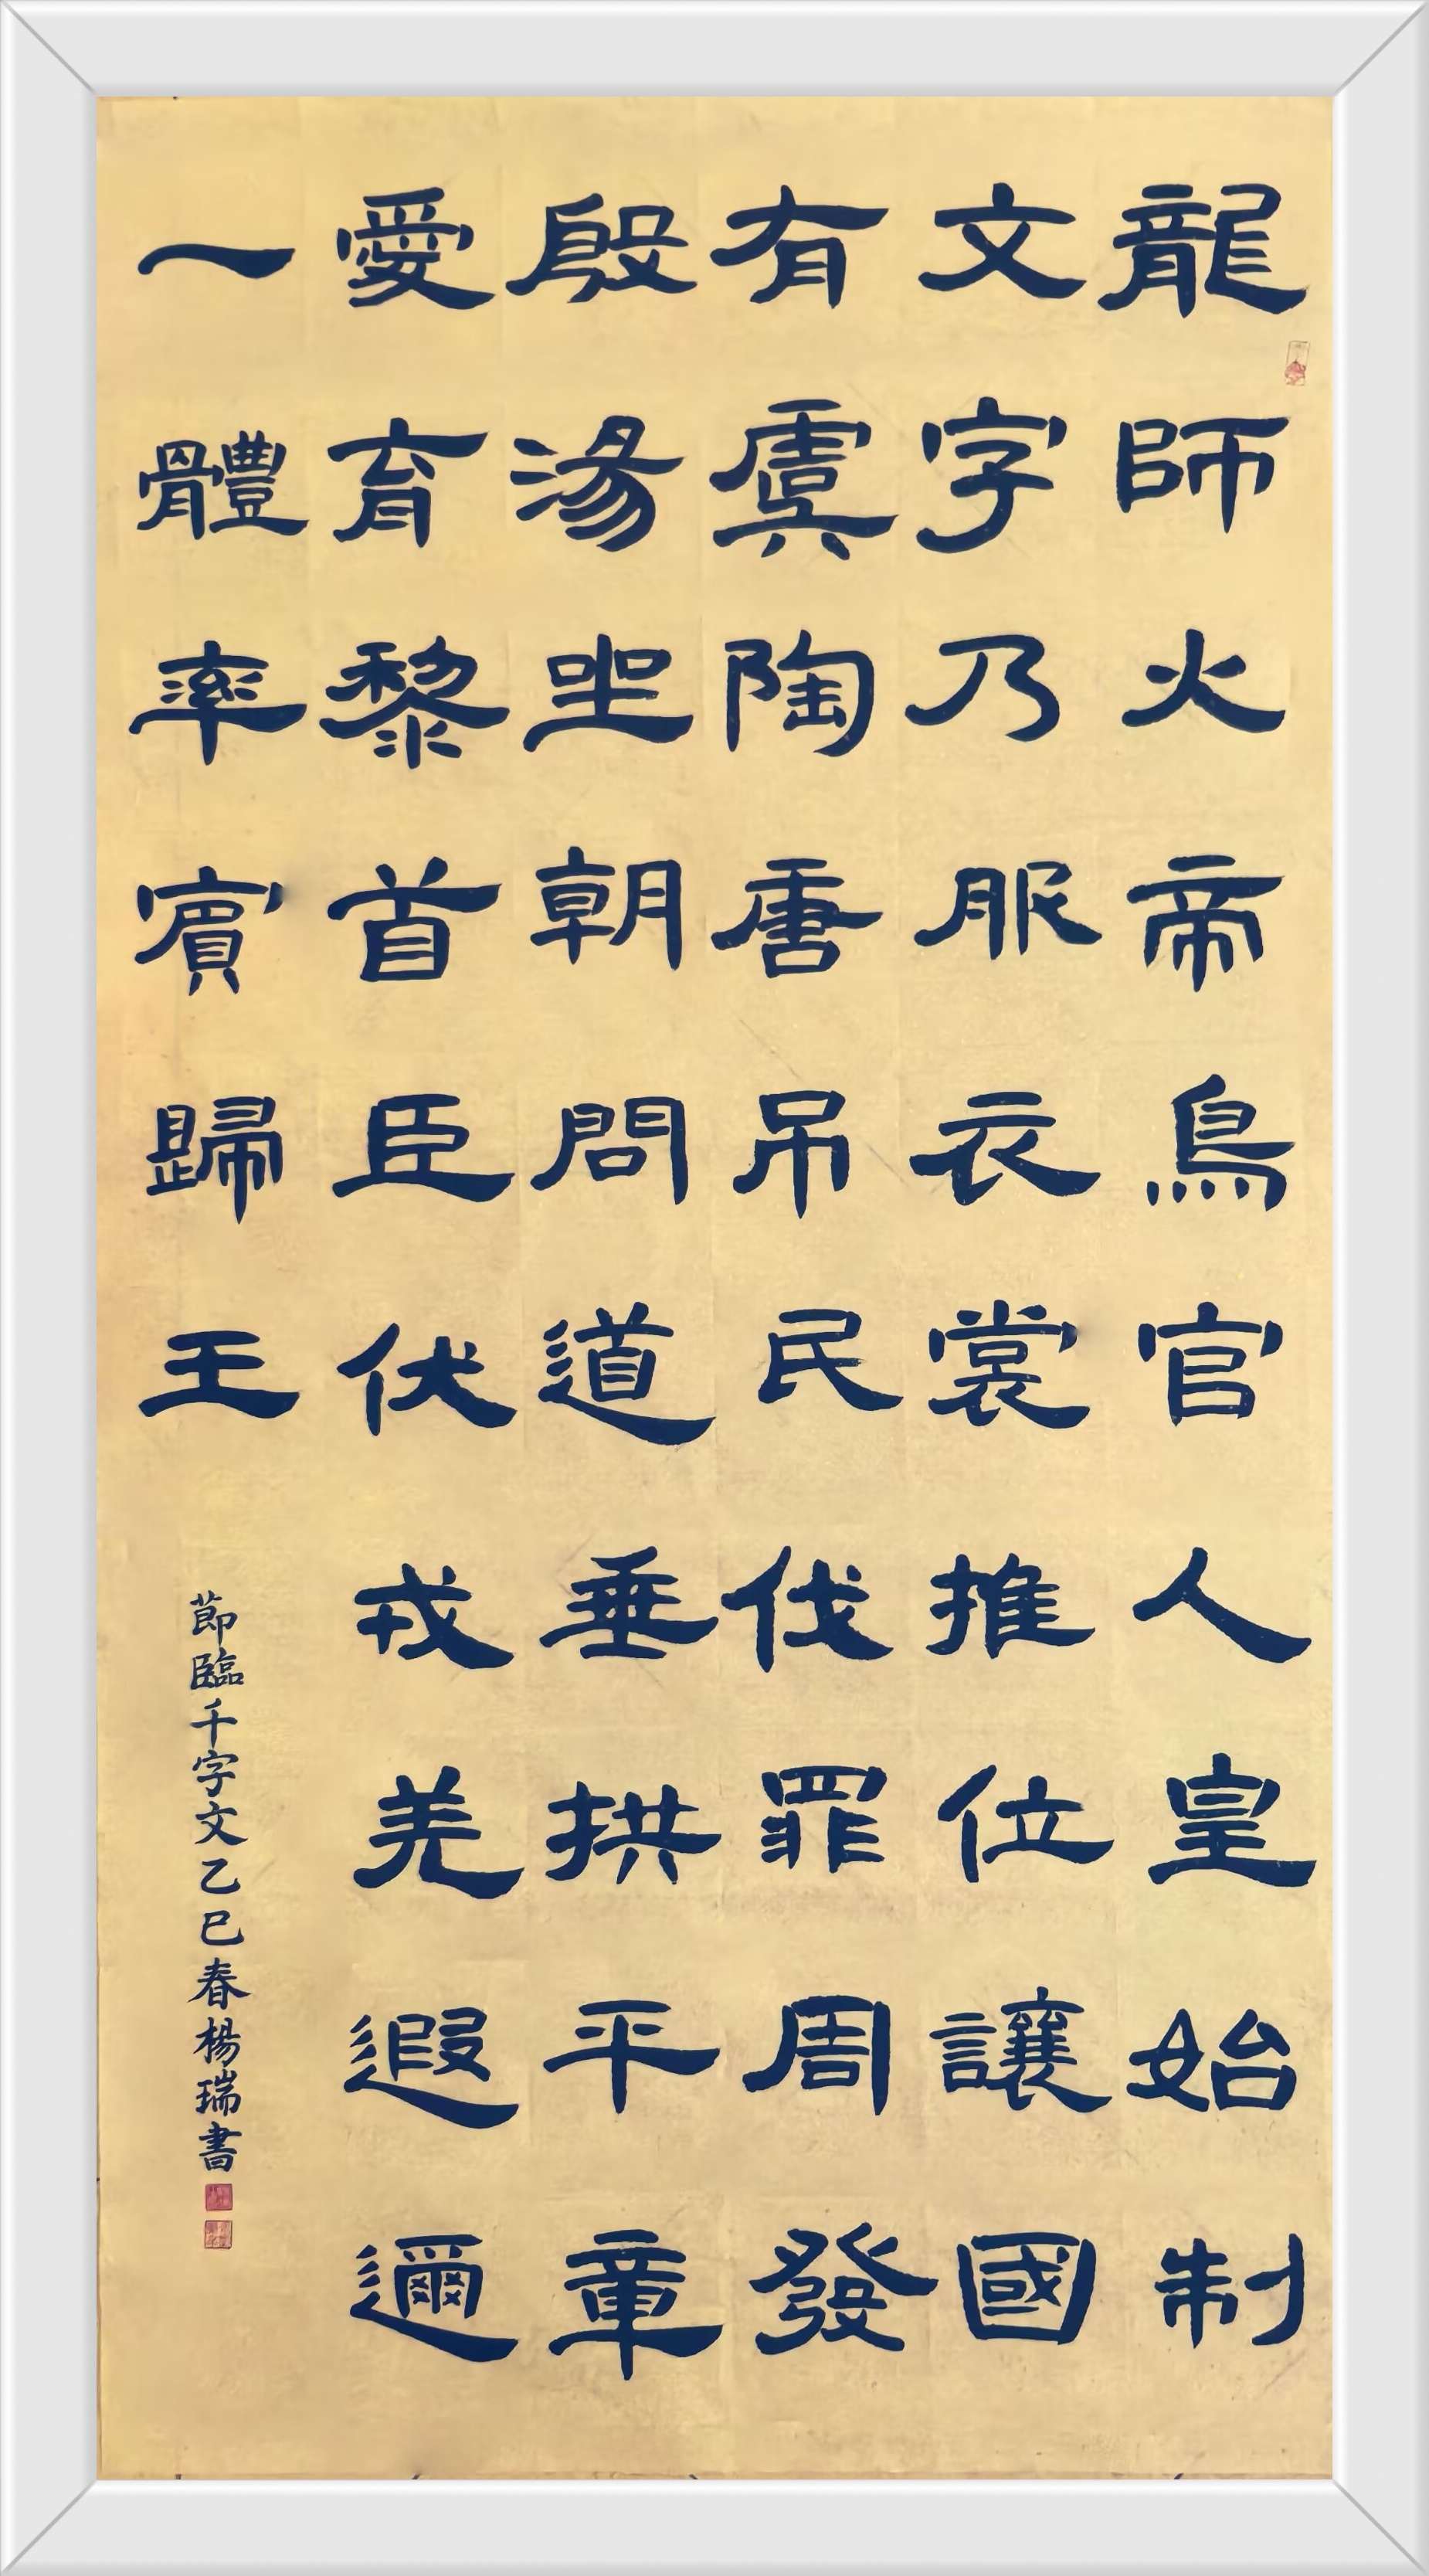 龍師火帝鳥官人皇始制
文字乃服衣裳推位讓國
有虞陶唐吊民伐罪周發
殷湯坐朝問道垂拱平章
愛育黎首臣伏戎羌遐邇
一體率賓歸王
節臨千字文乙巳春楊瑞書